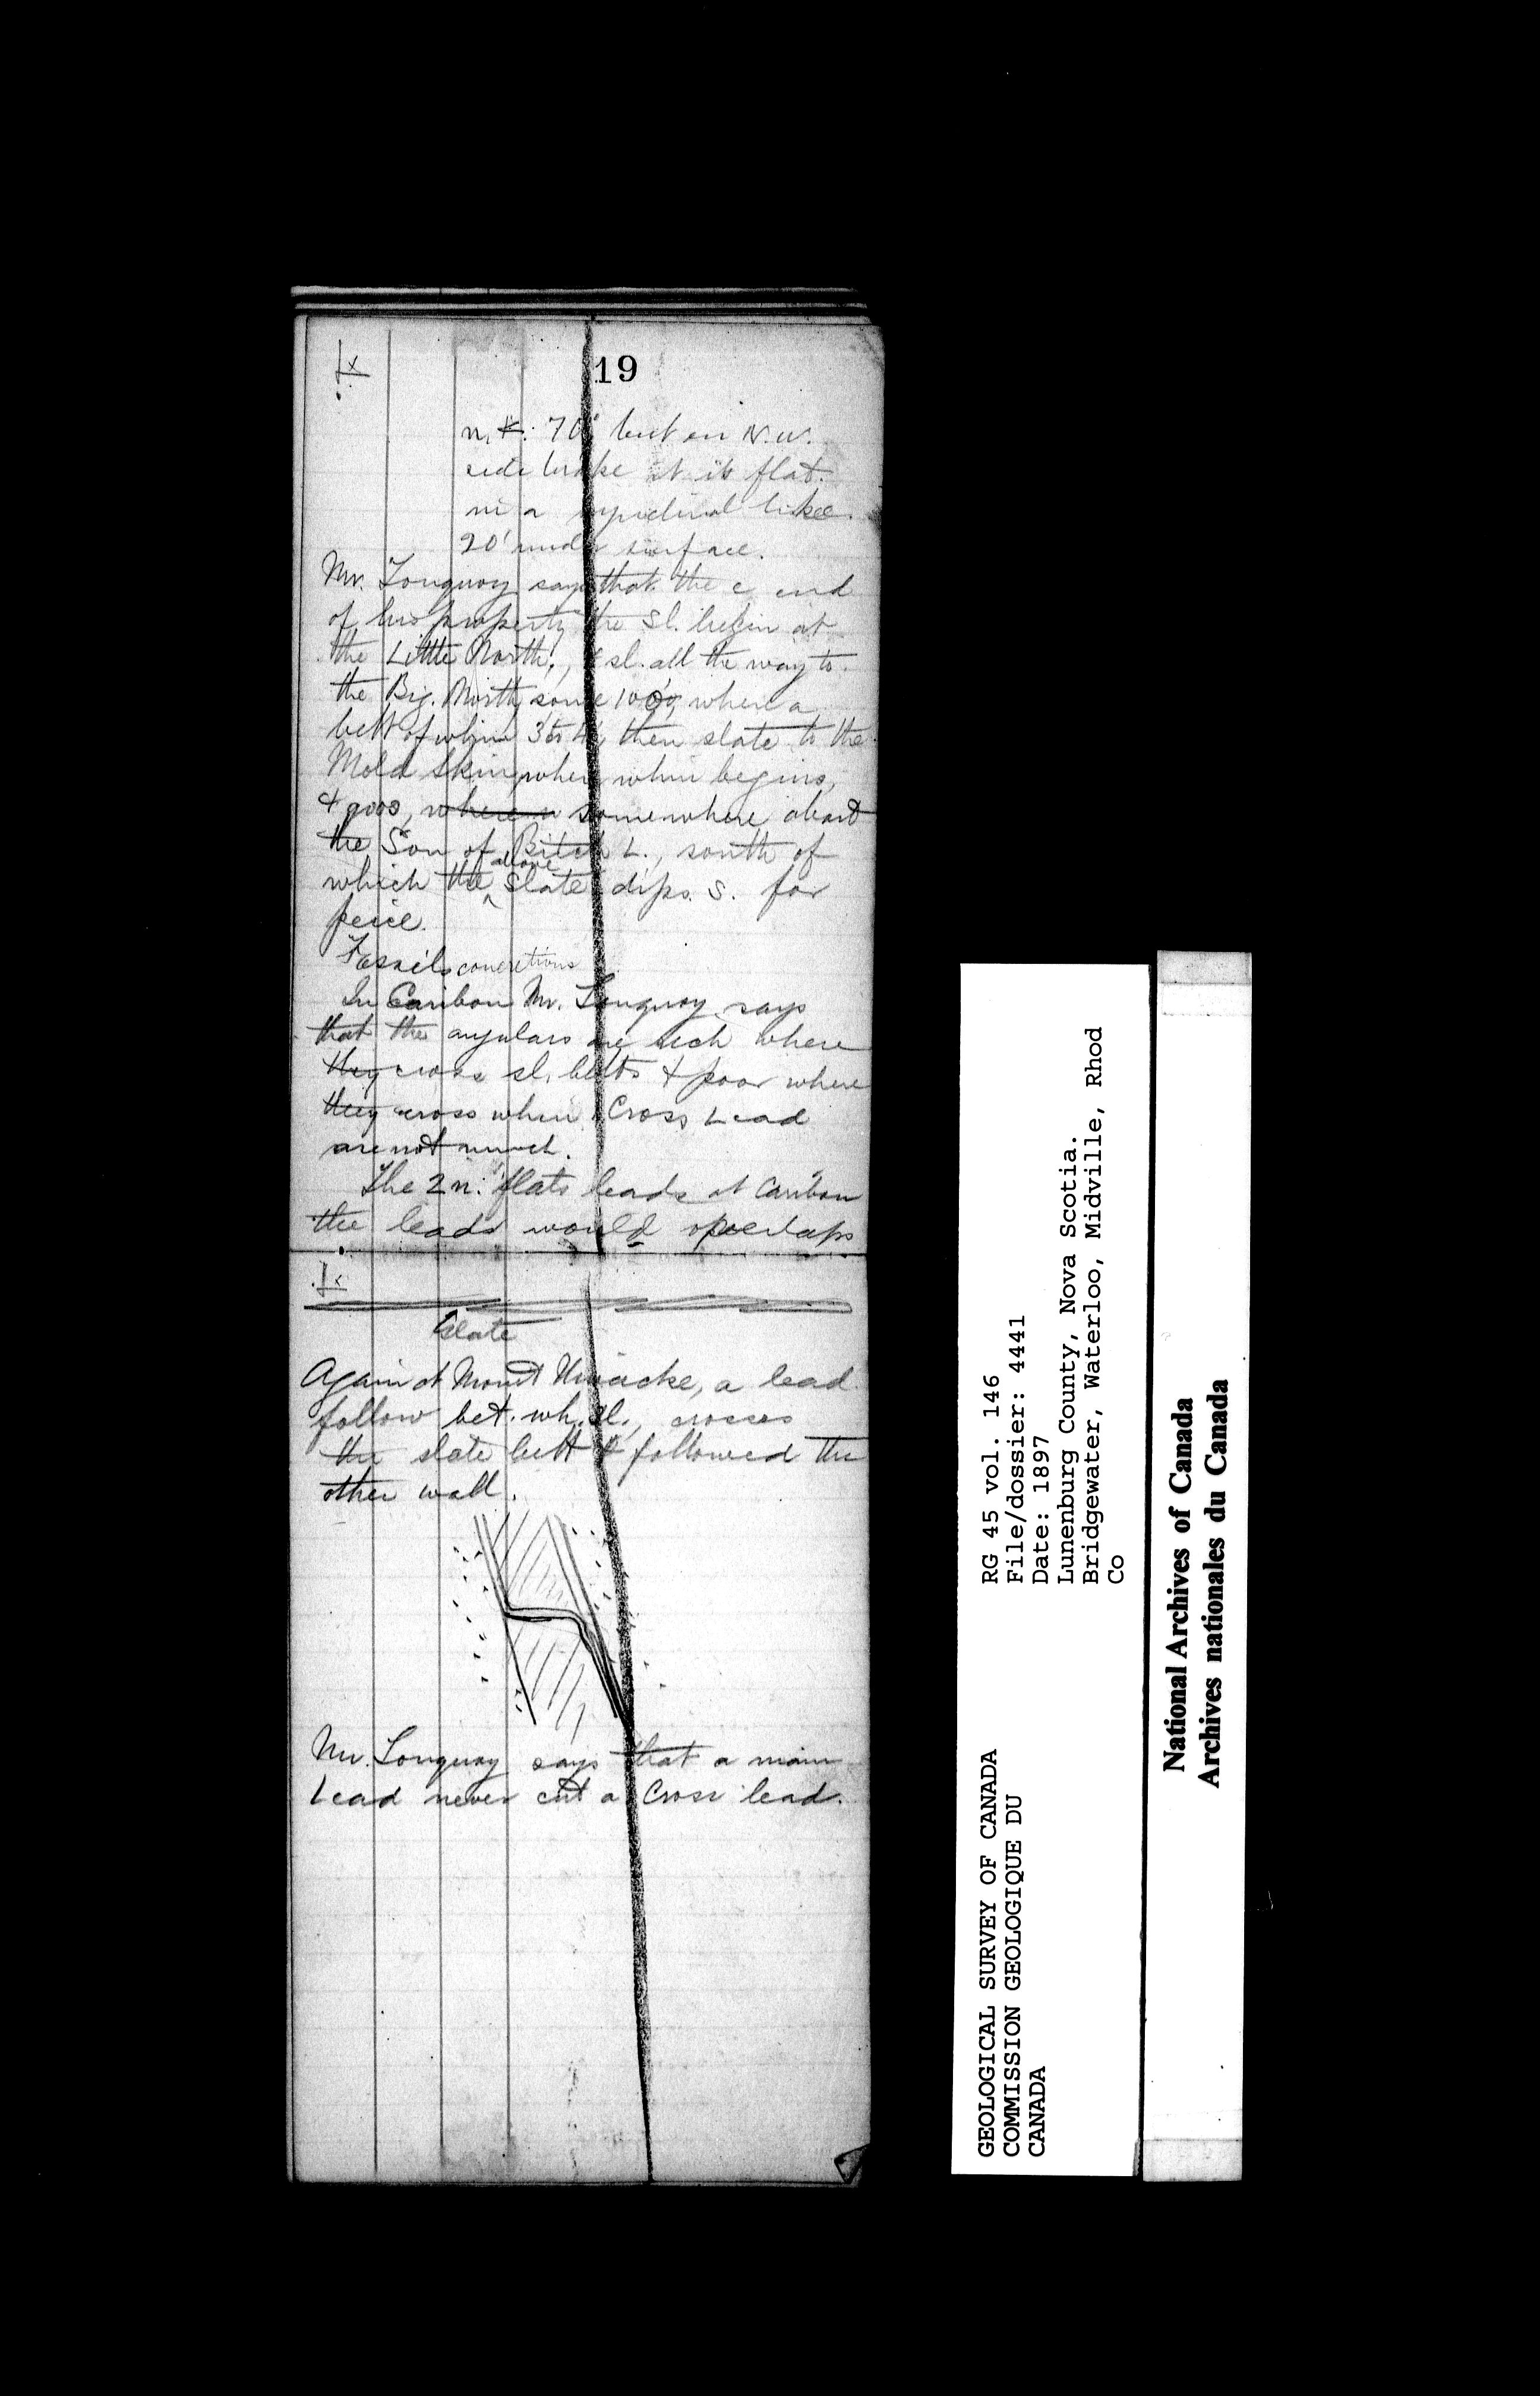 19
70° but on N.W.
side brake it is flat.
in a like
20' under surface.
Mr. Touquoy says that the e end
of his property the Sl. begin at
the Little North, & sl. all the way to
the Big. North, some 100', when a
belt of whin 3 to 4', then slate to the
Mold Skin, when whin begins,
& goes, where a somewhere about
the Son of Bitch L., south of
which the above slate dips S. for
peice.
Fossils concretions
In Caribou Mr. Touquoy says
that the angulars are rich where
they cross sl. belts & poor where
they cross whin. Cross Lead
are not much.
The 2 n. flats leads at Caribou
the leads would overlaps
Slate
Again at Mount Uniacke, a lead
follow bet. wh. sl., crosses
the slate belt & followed the
other wall.
Mr. Touquoy says that a main
Lead never cut a Cross lead.
GEOLOGICAL SURVEY OF CANADA
COMMISSION GEOLOGIQUE DU
CANADA
RG 45 vol. 146
File/dossier: 4441
Date: 1897
Lunenburg County, Nova Scotia.
Bridgewater, Waterloo, Midville, Rhod
Co
National Archives of Canada
Archives nationales du Canada